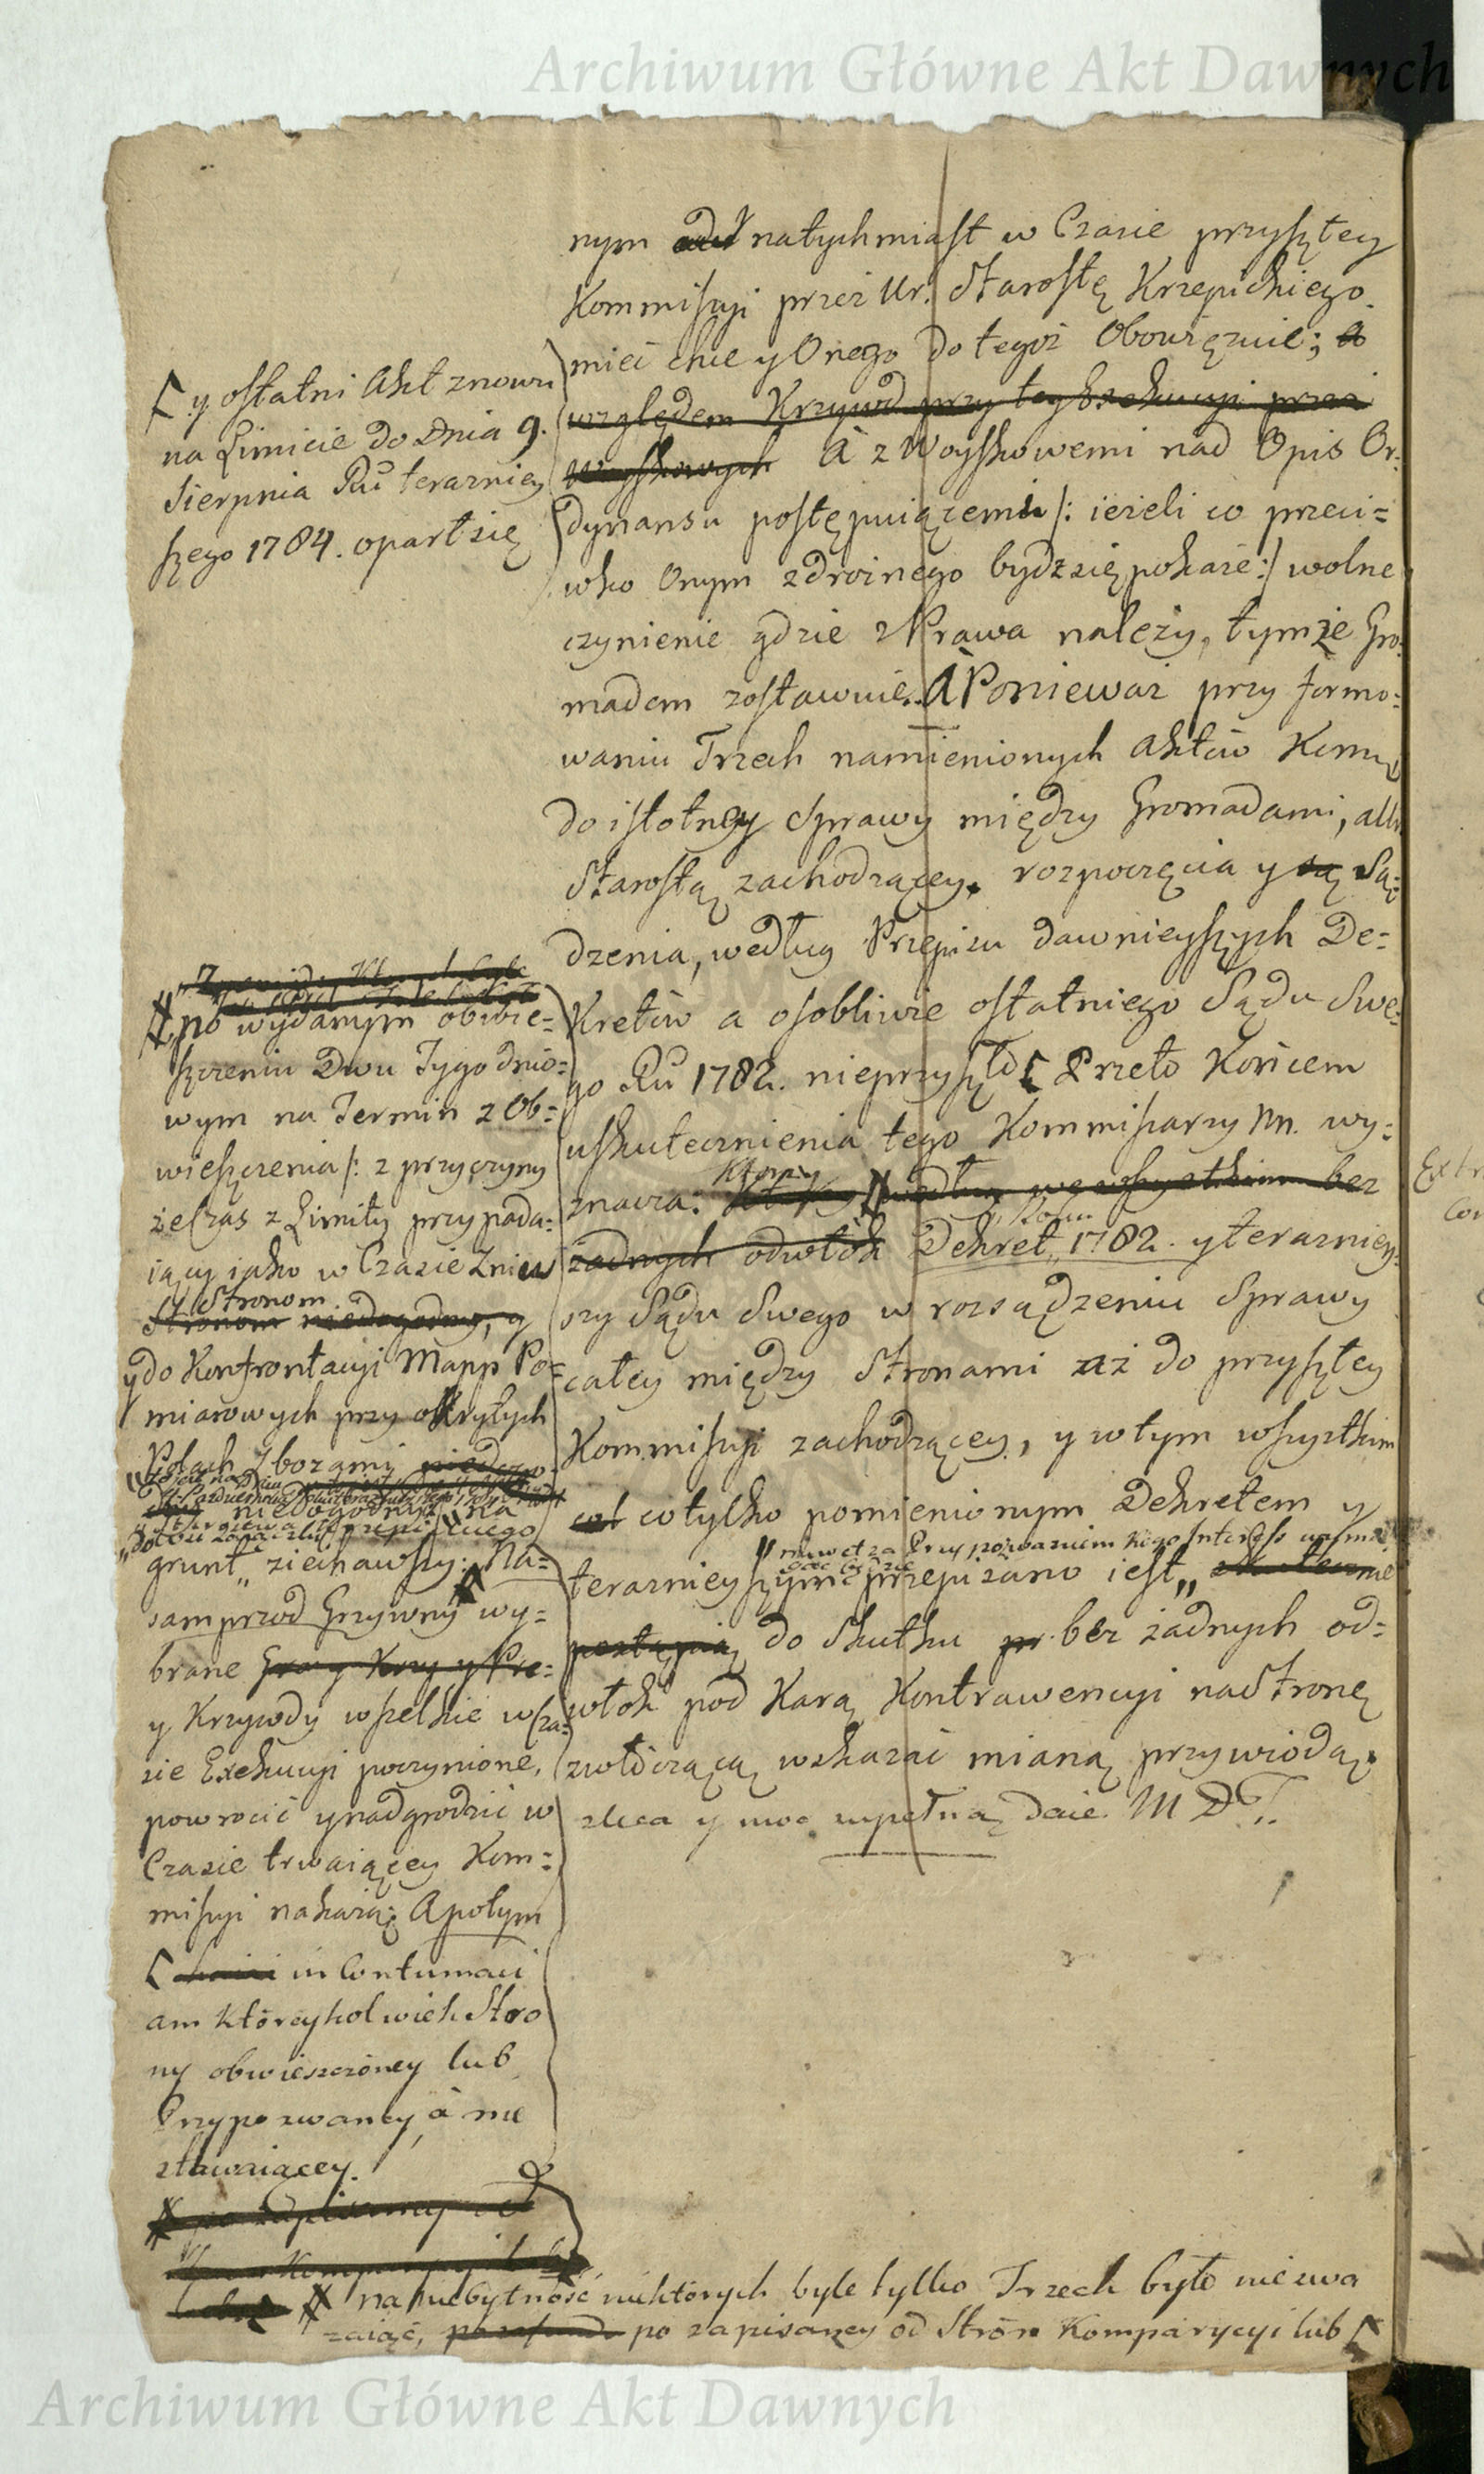 Archiwum Główne Akt Dawnych
nym natychmiast w Czasie przyszłey
Kommissyi przez Ur. Starostę Krzepickiego
mieć chce y Onego do tegoż Obowięzuie; a
względem Krzywd przy tey Exekucyi przez
Woyskowych A z Woyskowemi nad Opis Or:
dynansu postępuiącemi /: ieżeli co przeci=
wko Onym zdrożnego bydz się pokaże :/ wolne
czynienie gdzie z Prawa należy, tymże Gro:
madom zostawuie. A Ponieważ przy formo:
waniu Trzech namienionych Aktów Komm
do istotney Sprawy między Gromadami, a Ur
Starostą zachodzącey, rozpoczęcia y są Są:
dzenia, według Przepisu dawnieyszych De=
Kretów a osobliwie ostatniego Sądu Swe:
go Ru 1782. nieprzyszło [ Przeto Końcem
uskutecznienia tego Kommissarzy Nn. wy:
znacza: Którzy # według we wszystkim bez
żadnych odwłok Dekret „Roku„ 1782. y terazniey:
szy Sądu Swego w rozsądzeniu Sprawy
całey między Stronami aż do przyszłey
Kommissyi zachodzącey, y w tym wszystkim
co tylko pomienionym Dekretem y
„nawet za Przypozwaniem kogo Interess wyma
gać będzie
teraznieyszym przepisano iest„ skutecznie
postąpią do Skutku pr. bez żadnych od=
włok pod Karą Kontrawencyi na Stronę
zwłoczącą wskazać mianą przywiodą.
zleca y moc zupełną daie. M D T.
[ y ostatni Akt znowu
na Limicie do Dnia 9.
Sierpnia Ru teraznie
szego 1784. oparł się
# po wydanym obwie=
szczeniu Dwu Tygodnio=
wym na Termin z Ob=
wieszczenia /: z przyczyny
że Czas z Limity przypada=
iący iako w Czasie Żniw
Stronom
Stronom niedogodny, y
y do Konfrontacyi Mapp Po=
miarowych przy okrytych
Polach Zbożami
niedogodny :/ na
grunt„ ziechawszy: Na=
samprzod Grzywny wy=
brane Gro y Krzy y Pre=
y Krzywdy wszelkie w Cza=
sie Exekucyi poczynione,
powrocić y nadgrodzić w
Czasie trwaiącey Kom=
missyi nakażą; A potym
[ in Contumaci
am którey kolwiek Stro
ny obwieszczoney lub
Przypozwaney, a nie
stawaiącey.
# po zapisaney od
Stron Komparycyi lub
# na niebytność niektórych byle tylko Trzech było nie zwa
zaiąc, po zapisaney od Stron Komparycyi lub [
Extr
Con
Archiwum Główne Akt Dawnych